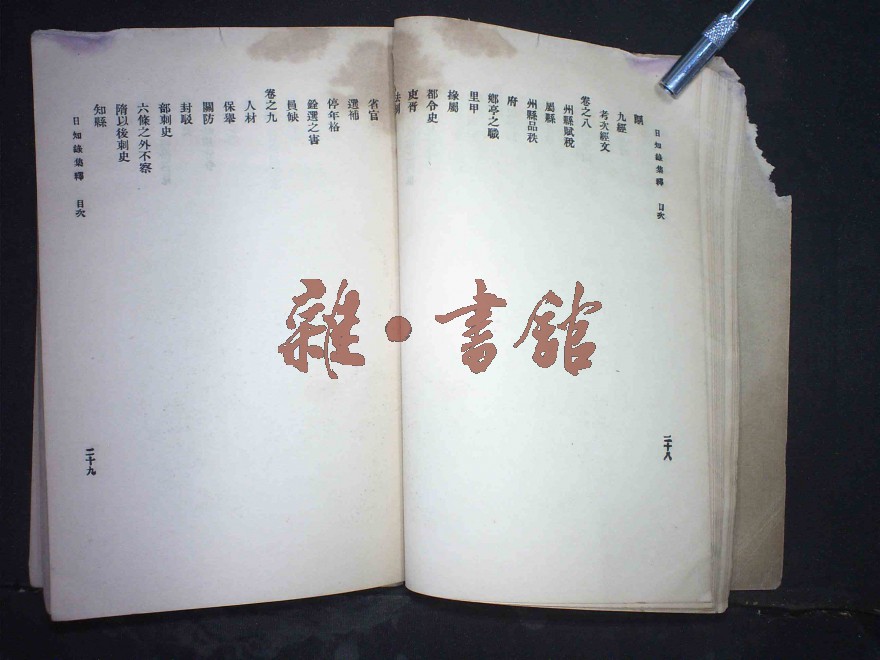 日知錄集釋 目次
九經
考次經文
卷之八
州縣賦稅
屬縣
州縣品秩
府
鄉亭之職
里甲
掾屬
都令史
吏胥
法制
二十八
省官
選補
停年格
銓選之害
員缺
卷之九
人材
保舉
關防
封駁
部刺史
六條之外不察
隋以後刺史
知縣
日知錄集釋 目次
二十九
雜·書館